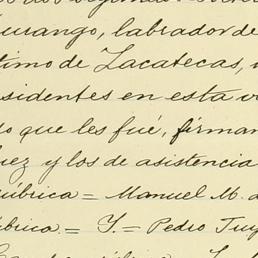 urango, labrador de
timo de Zacatecas,
sidentes en esta v
o que les fué, firman
uez y los de asistencia
úbrica = Manuel M. d
úbrica = Y. = Pedro Tuy